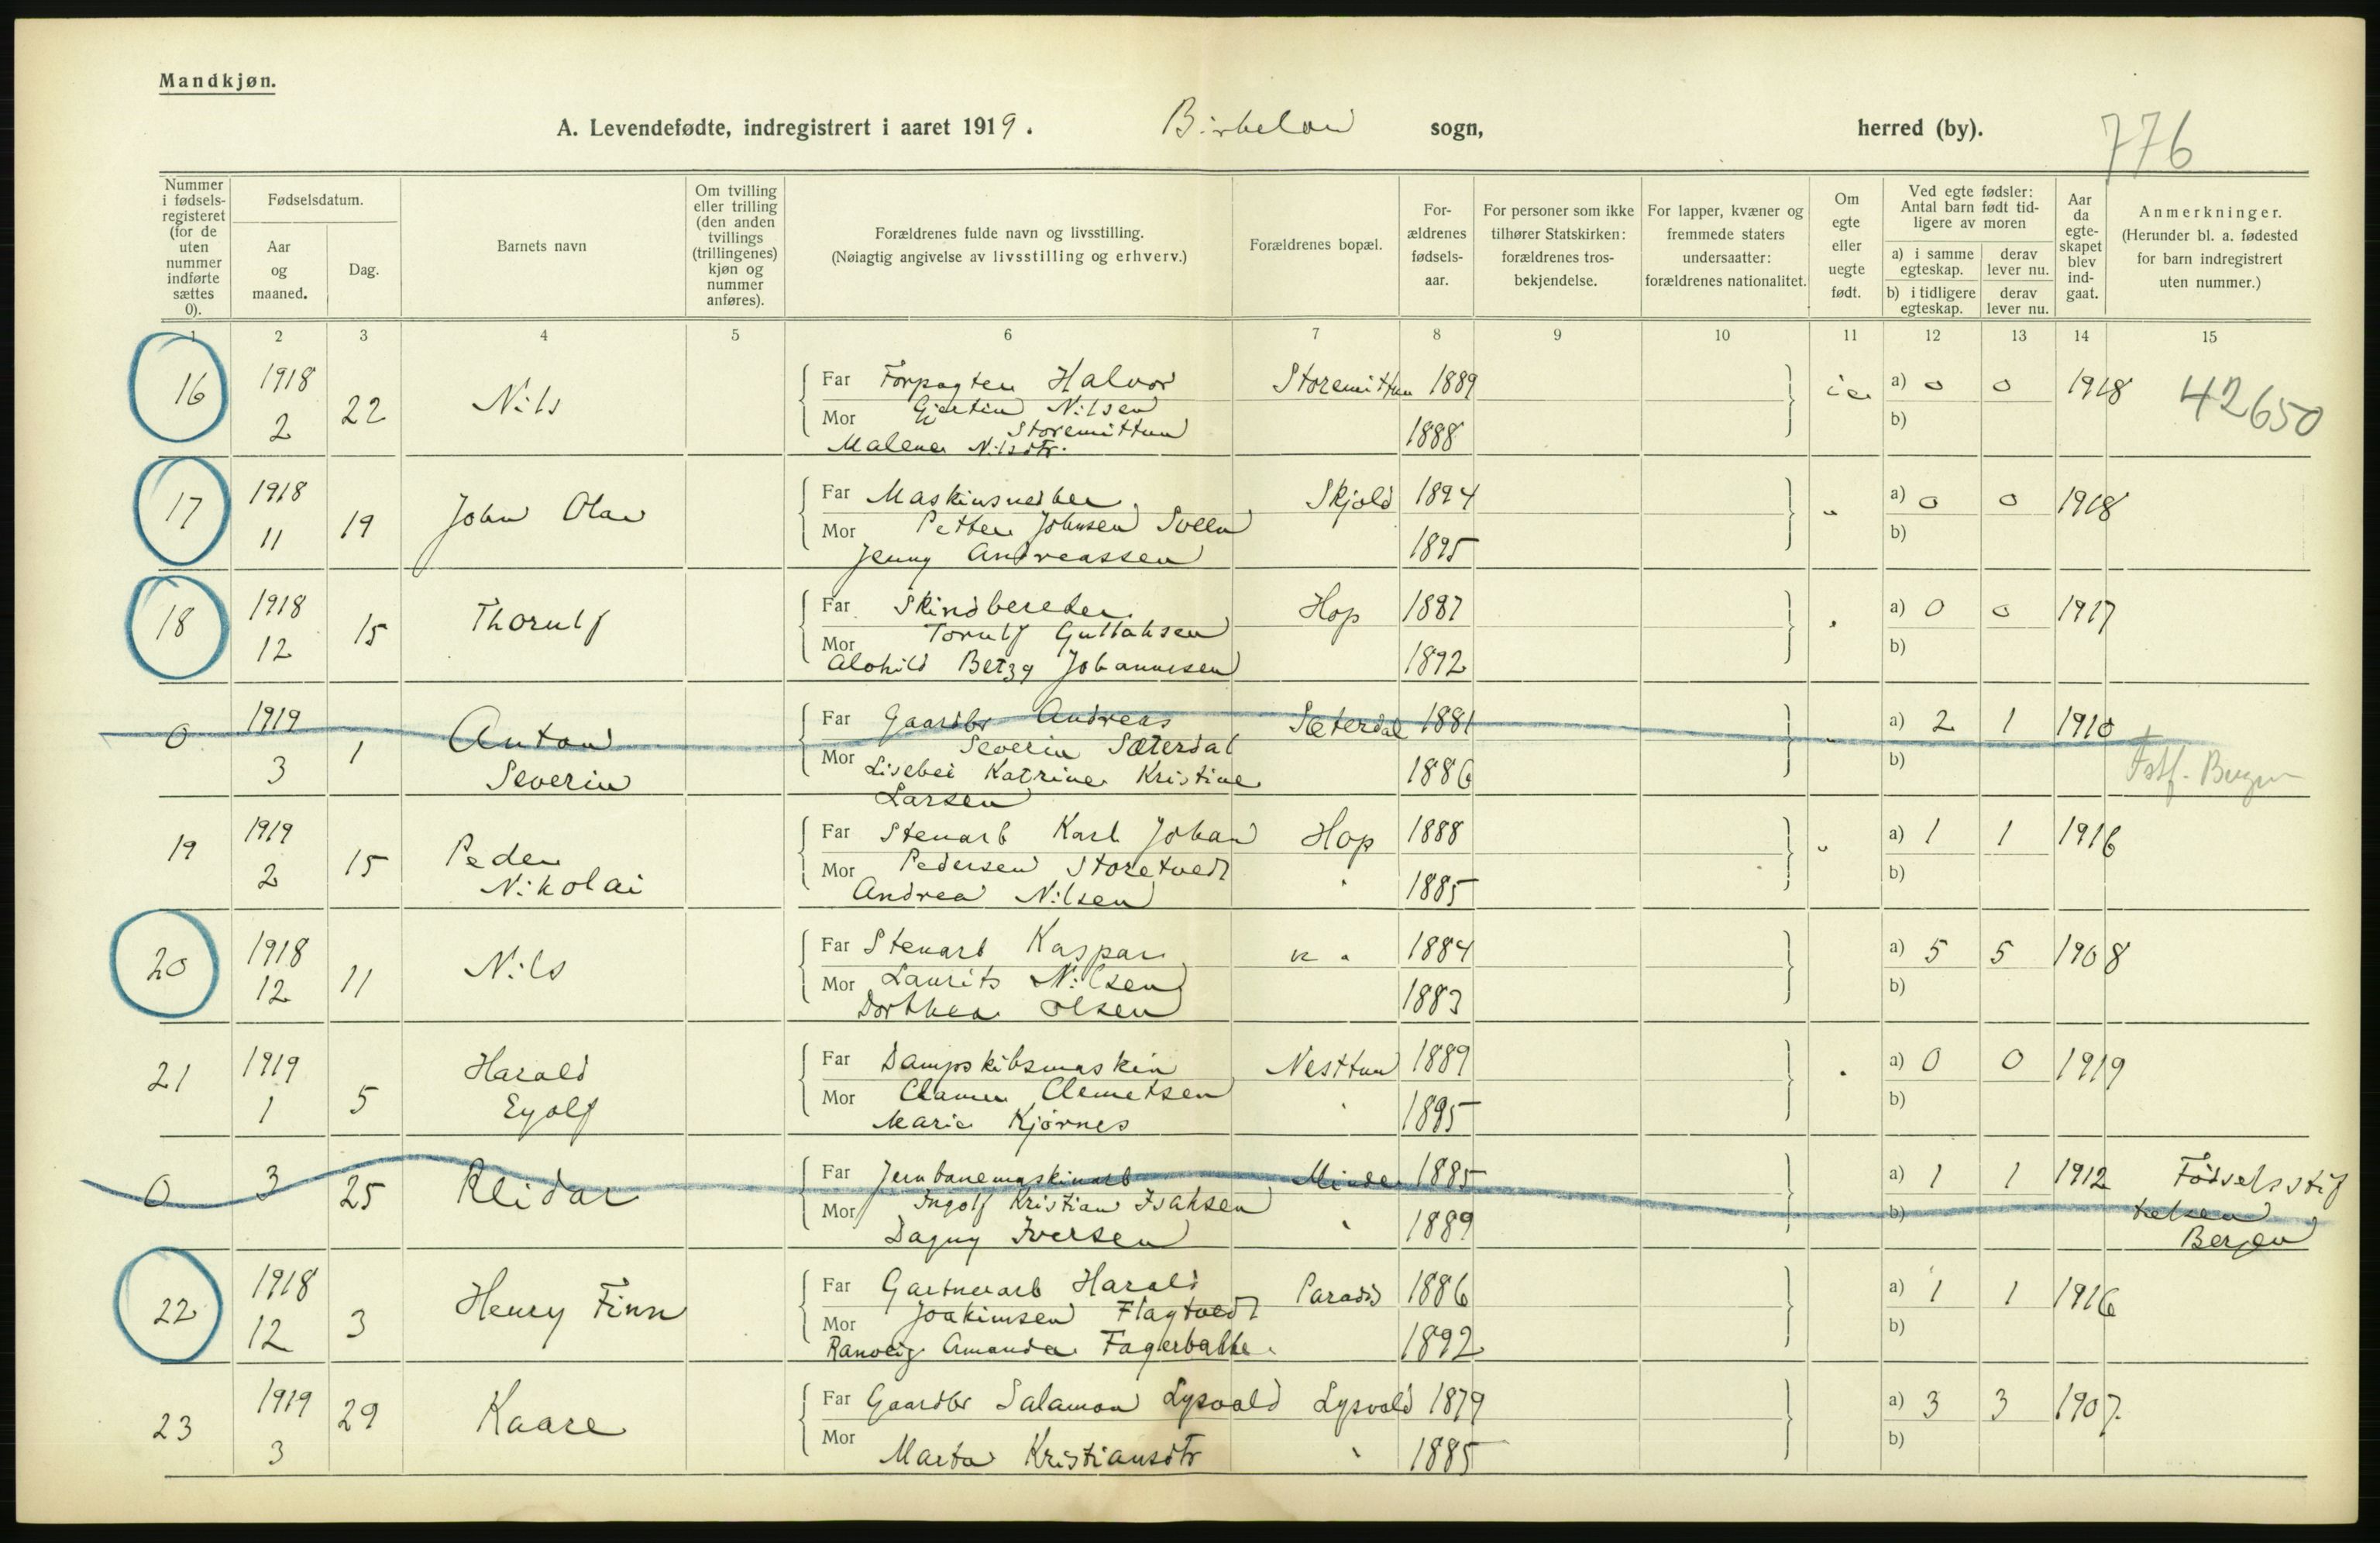 Mandkjøn.
A. Levendefødte, indregistrert i aaret 1919. Birkeland sogn, herred (by). 776
Nummer i fødsels-registeret (for de uten nummer indførte sættes 0).
Fødselsdatum.
Aar og maaned.
Dag.
Barnets navn
Om tvilling eller trilling (den anden tvillings (trillingenes) kjøn og nummer anføres).
Forældrenes fulde navn og livsstilling.
(Nøiagtig angivelse av livsstilling og erhverv.)
Forældrenes bopæl.
For-ældrenes fødsels-aar.
For personer som ikke tilhører Statskirken: forældrenes tros-bekjendelse.
For lapper, kvæner og fremmede staters undersaatter: forældrenes nationalitet.
Om egte eller uegte født.
Ved egte fødsler: Antal barn født tid-ligere av moren
a) i samme egteskap. derav lever nu.
b) i tidligere egteskap. derav lever nu.
Aar da egte-skapet blev ind-gaat.
Anmerkninger.
(Herunder bl. a. fødested for barn indregistrert uten nummer.)
1 2 3 4 5 6 7 8 9 10 11 12 13 14 15
16 1918 2 22 Nils
Far Forpagter Halvor Storemittun 1889 a) 0 0 1918 42650
Gjertin Nilsen
Mor Storemittun 1888 b)
Malene Nilsdtr.
17 1918 11 19 John Olav
Far Maskinsnedker Skjold 1894 " a) 0 0 1918
Mor Petter Johnsen Sveen b)
Jenny Andreassen 1895
18 1918 12 15 Thorulf
Far Skindbereder Hop 1887 a) 0 0 1917
Mor Torulf Gullaksen b)
Alohild Betzy Johannesen 1892
0 1919 3 1 Anton Severin
Far Gaardbr Andreas Sæterdal 1881 " a) 2 1 1910
Severin Sæterdal
Mor Lisebei Katrine Kristine 1886 b) Fstf. Bergen
Larsen
19 1919 2 15 Peder Nikolai
Far Stenarb Karl Johan Hop 1888 " a) 1 1 1916
Mor Pedersen Storetvedt b)
Andrea Nilsen 1885
20 1918 12 11 Nils
Far Stenarb Kaspar " 1884 a) 5 5 1908
Mor Laurits Nilsen b)
Dorthea Olsen 1883
21 1919 1 5 Harald Eyolf
Far Dampskibsmaskin Nesttun 1889 a) 0 0 1919
Mor Clemetsen b)
Marie Kjørnes 1895
0 3 25 Reidar
Far Jernbanemaskinarb Minde 1885 a) 1 1 1912 Fødselsstif
Mor Ingolf Kristian Isaksen b) telsen
Dagny Iversen 1889 Bergen
22 1918 12 3 Henry Finn
Far Gartnerarb Harald Paradis 1886 a) 1 1 1916
Mor Joakimsen Flagtvedt b)
Ranveig Amanda Fagerbakke 1892
23 1919 3 29 Kaare
Far Gaardbr Salamon Lysvold Lysvold 1879 a) 3 3 1907
Mor b)
Marta Kristiansdtr 1885